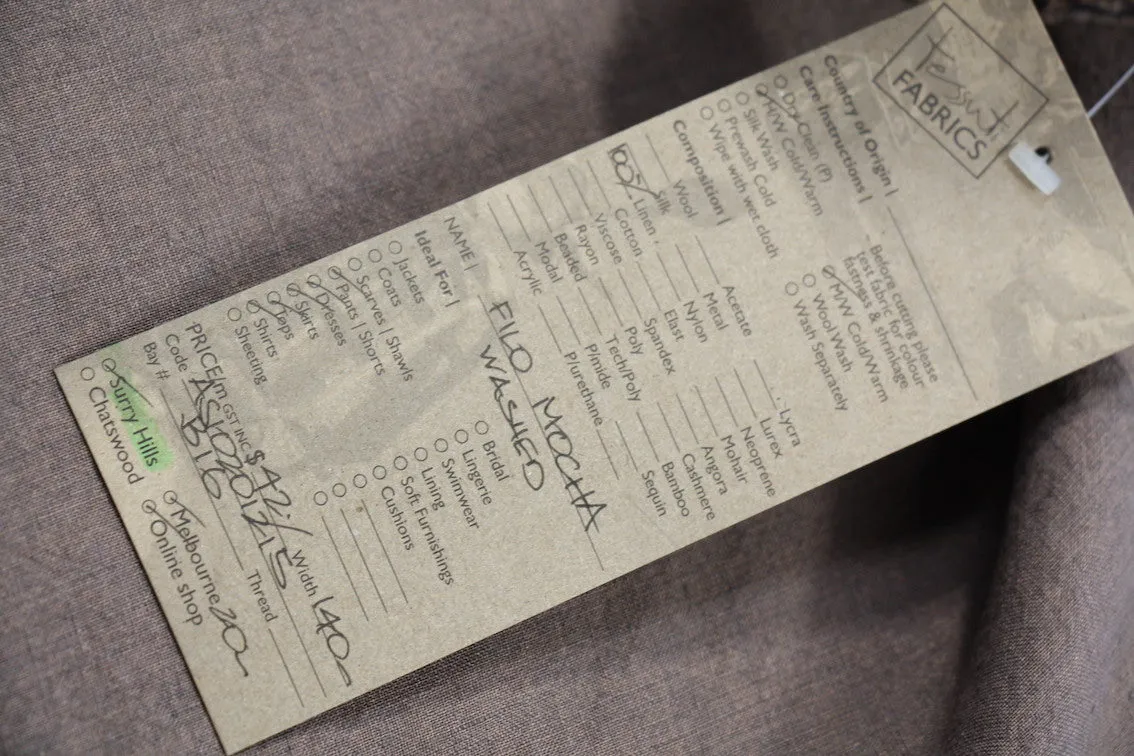 Tessuti
FABRICS
Country of Origin |
Care Instructions |
Dry Clean (P)
H/W Cold/Warm
Silk Wash
Prewash Cold
Wipe with wet cloth
Before cutting please
test fabric for colour
fastness & shrinkage
M/W Cold/Warm
Wool Wash
Wash Separately
Composition |
Wool
Silk
100% Linen
Cotton
Viscose
Rayon
Beaded
Modal
Acrylic
Acetate
Metal
Nylon
Elast
Spandex
Poly
Tech/Poly
P/mide
P/urethane
Lycra
Lurex
Neoprene
Mohair
Angora
Cashmere
Bamboo
Sequin
NAME | FILO MOCHA
WASHED
Ideal For |
Jackets
Coats
Scarves | Shawls
Pants | Shorts
Dresses
Skirts
Tops
Shirts
Sheeting
Bridal
Lingerie
Swimwear
Lining
Soft Furnishings
Cushions
PRICE m GST INC $42./ Width 140
Code Thread
Bay # B16
Surry Hills
Chatswood
Melbourne 20
Online shop